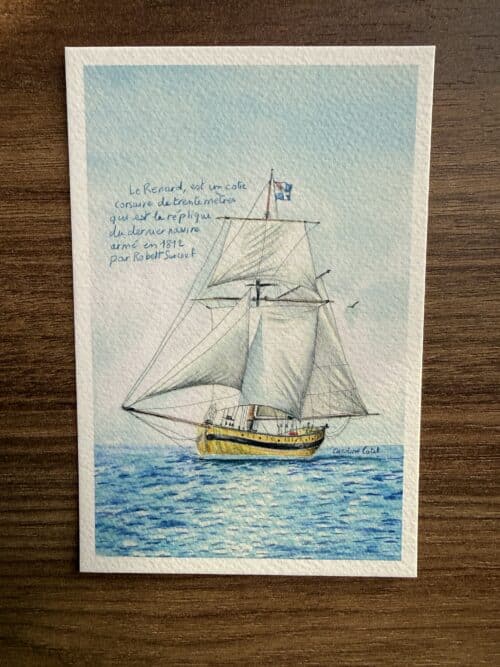 Le Renard, est un cotre
corsaire de trente mètres
qui est la réplique
du dernier navire
armé en 1812
par Robert Surcouf
Caroline